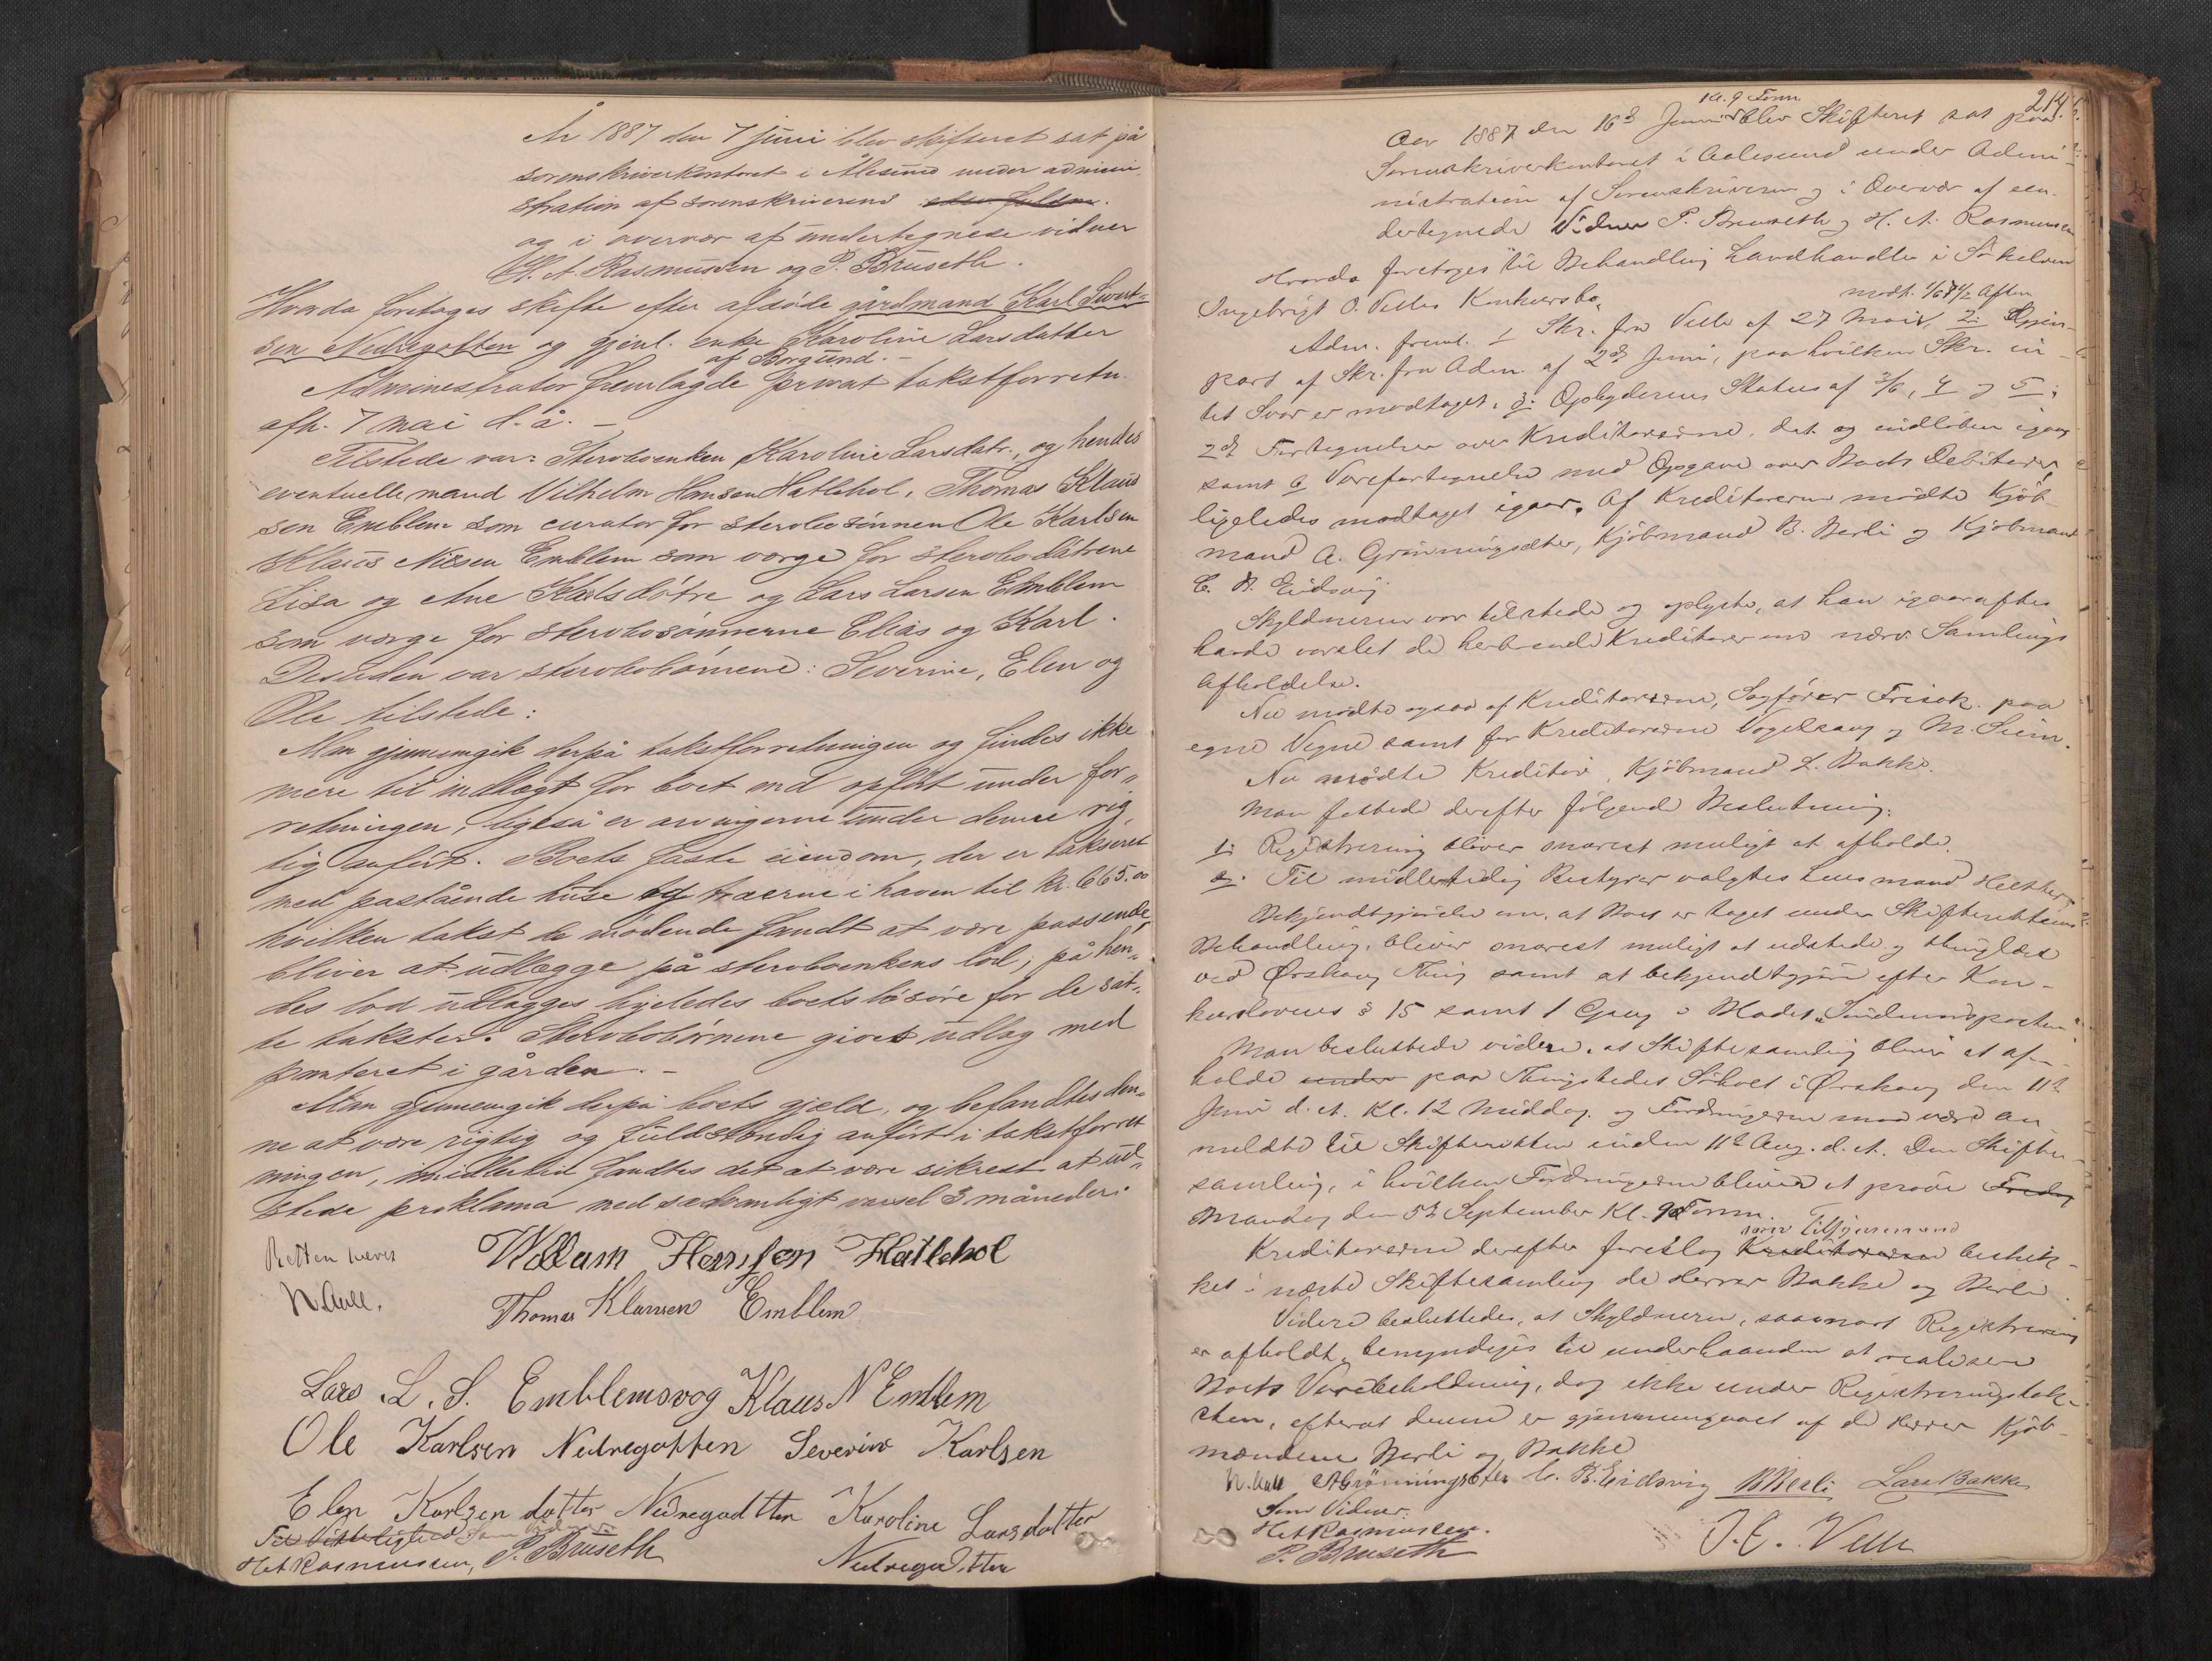 År 1887 den 7 juni blev skifteret sat på
sorenskriverkontoret i Ålesund under admini
stration af sorenskriveren
og i overvær af undertegnede vidner
H. A. Rasmussen og P. Bruseth.
Hvorda foretoges skifte efter afdøde gårdmand Karl Sivert-
sen Nedregotten og gjenl. enke Karoline Larsdatter
af Borgund. -
Administrator fremlagde privat takstforretn.
afh. 7 mai d. å. -
Tilstede var: Stervboenken Karoline Larsdatr., og hendes
eventuelle mand Vilhelm Hansen Hatlehol, Thomas Klaus
sen Emblem som curator for stervbosønnen Ole Karlsen
Klaus Nilsen Emblem som værge for stervbodøtrene
Lisa og Ane Karlsdøtre og Lars Larsen Emblem
som værge for stervbosønnerne Elias og Karl.
Desuden var stervbobørnene: Severine, Elen og
Ole tilstede:
Man gjennemgik derpå takstforretningen og findes ikke
mere til indtægt for boet end opført under for„
retningen, ligeså er arvingerne under denne rig„
tig anført. Boets faste eiendom, der er takseret
med påstående huse og træerne i haven til kr. 665.00
hvilken takst de mødende fandt at være passende,
bliver at udlægge på stervboenkens lod; på hen„
des lod udlægges ligeledes boets løsøre for de sat„
te takster. Stervbobørnene gives udlæg med
panteret i gården. -
Man gjennemgik derpå boets gjæld, og befandtes den„
ne at være rigtig og fuldstændig anført i takstforret
ningen, imidlertid fandtes det at være sikrest at ud„
stede proklama med sædvanligt varsel 3 måneder.
Retten hævet
N. Aall.
Willam Hansen Hatlehol
Thomas Klausen Emblem
Lars L. S. Emblemsvog Klaus N Emblem
Ole Karlsen Nedregotten Severine Karlsen
Elen Karlsen datter Nedregadtten Karoline Larsdatter
Til Vitterlighed Som Vidner: Nedregadtten
H A Rasmussen, P. Bruseth
214.
kl. 9 Form
Aar 1887 den 16d Juni blev Skifteret sat paa
Sorenskriverkontoret i Aalesund under Admi-
nistration af Sorenskriveren og i Overvær af un-
dertegnede Vidner P. Bruseth og H. A. Rasmussen
Hvorda foretoges til Behandling Landhandler i Søkelven
Ingebrigt O. Velles Konkursbo.
modt. 1/6 7 1/2 Aften
Adm. freml. 1 Skr. fra Velle af 27 Mai, 2: Gjen-
part af Skr. fra Adm. af 2d Juni, paa hvilken Skr. in-
tet Svar er modtaget, 3: Opbyderens Status af 3/6, 4 og 5:
2de Fortegnelser over Kreditorerne, dat. og indløben igaar
samt 6 Varefortegnelse med Opgave over Boets Debitorer,
ligeledes modtaget igaar. Af Kreditorerne mødte Kjøb-
mand A. Grønningsæter, Kjøbmand B. Berli og Kjøbmand
C. B. Eidsvig
Skyldneren var tilstede og oplyste, at han igaaraftes
havde varslet de herboende Kreditorer om nærv. Samlings
Afholdelse.
Nu mødte ogsaa af Kreditorerne, Sagfører Frisak paa
egne Vegne samt for Kreditorerne Vogelsang og M. Siem.
Nu mødte Kreditor, Kjøbmand L. Bakke.
Man fattede derefter følgende Beslutning:
1: Registrering bliver snarest muligt at afholde.
2: Til midlertidig Bestyrer valgtes Lensmand
Bekjendtgjørelse om, at Boet er taget under Skifterettens
Behandling, bliver snarest muligt at udstede og thinglæse
ved Ørskoug Thing samt at bekjendtgjøre efter Kon-
kurslovens § 15 samt 1 Gang i Bladet „Søndmørsposten"
Man besluttede videre, at Skiftesamling bliver at af-
holde under paa Thingstedet Søholt i Ørskoug den 11te
Juni d. A. Kl. 12 Middag og Fordringerne maa være an-
meldte til Skifteretten inden 11te Aug. d. A. Den Skifte-
samling, i hvilken Fordringerne bliver at prøve Fredag
Mandag den 5te September Kl. 9 Form.
som Tilsynsmænd
Kreditorerne derefter foreslog Kreditorerne beskik-
ket i næste Skiftesamling de Herrer Bakke og Berli.
Videre besluttedes, at Skyldneren, saasnart Registrering
er afholdt, bemyndiges til underhaanden at realisere
Boets Varebeholdning, dog ikke under Registreringstak-
sten, efterat denne er gjennemgaaet af de Herrer Kjøb-
mændene Berli og Bakke
N. Aall A Grönningsæter C. B. Eidsvig B Berli Lars Bakke
Som Vidner:
H A Rasmussen.
P. Bruseth
I. O. Velle